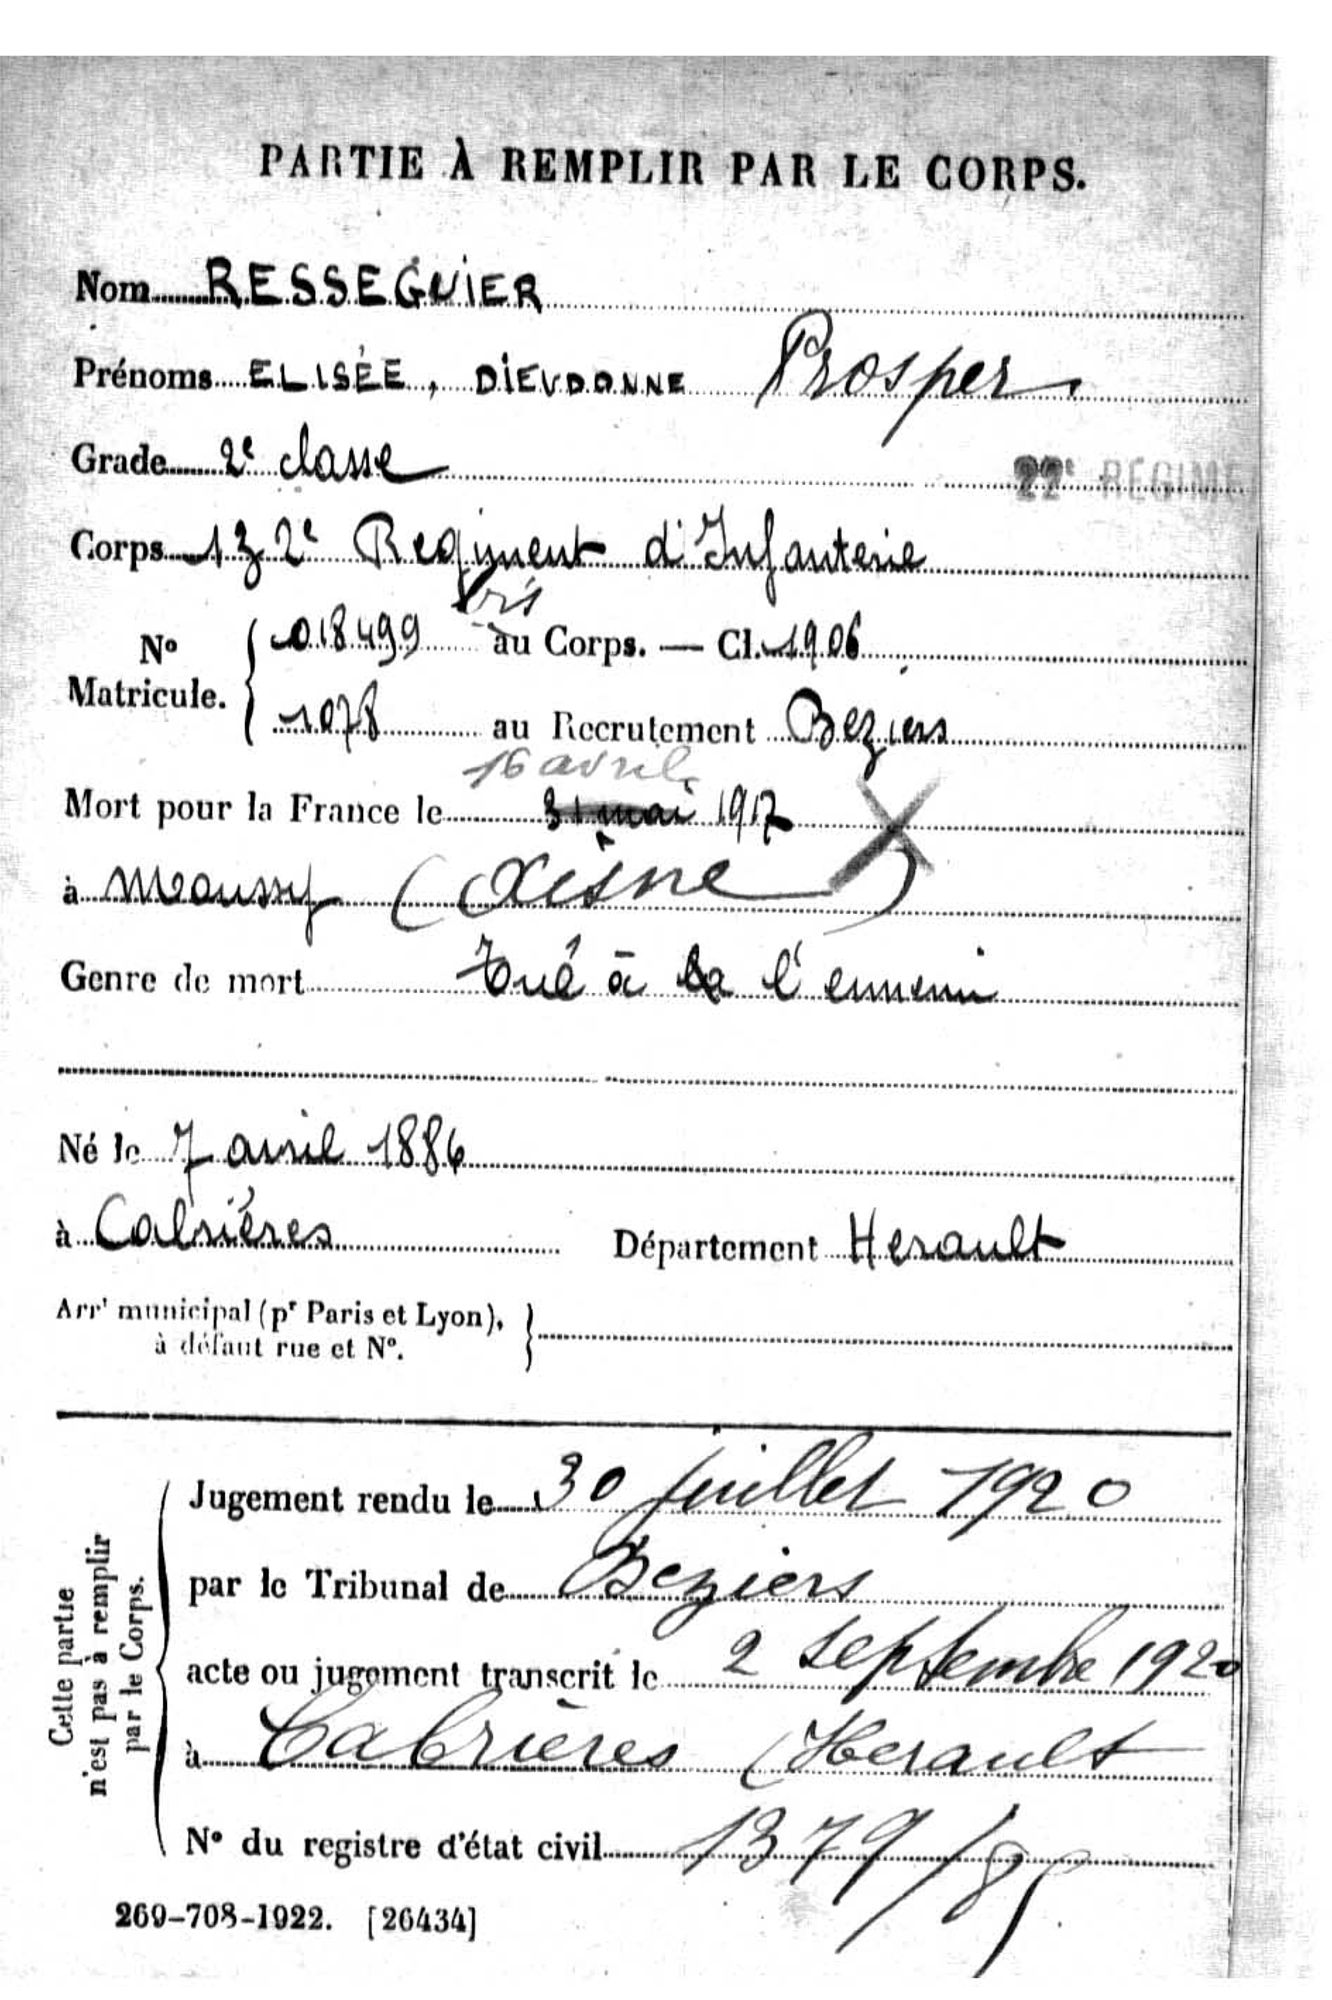 PARTIE À REMPLIR PAR LE CORPS.
Nom RESSEGUIER
Prénoms ELISÉE, DIEUDONNE Prosper
Grade 2e classe
22e REGIME
Corps 132e Regiment d'Infanterie
bis
No Matricule. 018499 au Corps. — Cl. 1906
1078 au Recrutement Beziers
16 avril
Mort pour la France le 31 mai 1917
à Moussy (Aisne)
Genre de mort Tué à la l'ennemi
Né le 7 avril 1886
à Cabriéres Département Herault
Arrt municipal (pr Paris et Lyon),
à défaut rue et No.
Cette partie n'est pas à remplir par le Corps.
Jugement rendu le 30 juillet 1920
par le Tribunal de Beziers
acte ou jugement transcrit le 2 septembre 1920
à Cabrières (Herault
No du registre d'état civil 1379/85
269-708-1922. [26434]